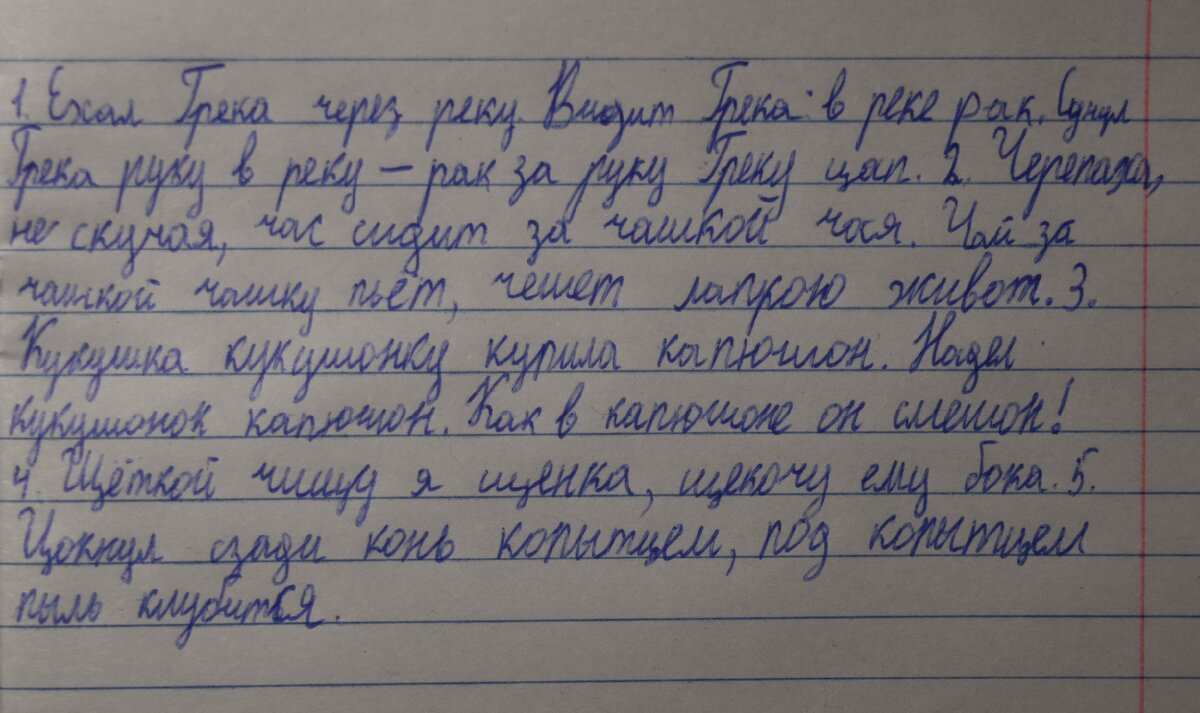 1. Ехал Грека через реку. Видит Грека: в реке рак. Сунул
Грека руку в реку – рак за руку Греку цап. 2. Черепаха,
не скучая, час сидит за чашкой чая. Чай за
чашкой чашку пьёт, чешет лапкою живот. 3.
Кукушка кукушонку купила капюшон. Надел
кукушонок капюшон. Как в капюшоне он смешон!
4. Щёткой чищу я щенка, щекочу ему бока. 5.
Цокнул сзади конь копытцем, под копытцем
пыль клубится.